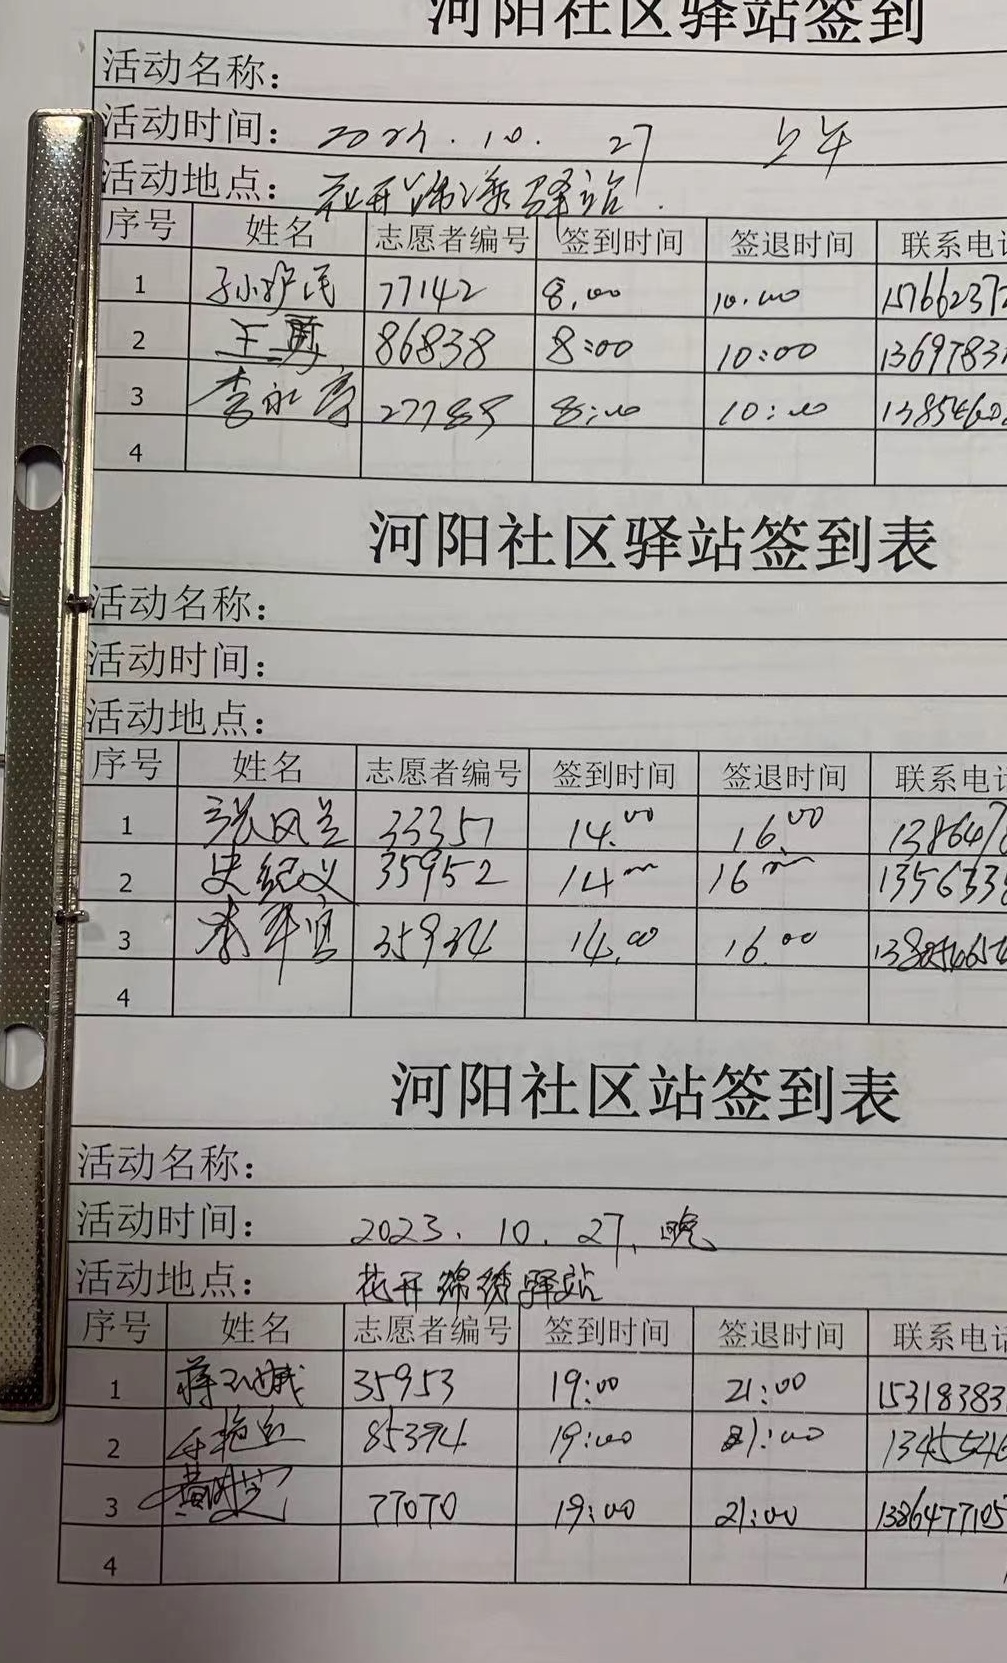 河阳社区驿站签到
活动名称：
活动时间： 10. 27 上午
活动地点：花开锦绣驿站.
序号 姓名 志愿者编号 签到时间 签退时间 联系电话
1 77142 8.00 10.00 1576623
2 王 86838 8:00 10:00 1369783
3 李永 8:00 10:00 1385460
4
河阳社区驿站签到表
活动名称：
活动时间：
活动地点：
序号 姓名 志愿者编号 签到时间 签退时间 联系电话
1 张风兰 33351 14.00 16.00 138647
2 史纪义 35952 14 00 16 00 135633
3 35934 14.00 16.00
4
河阳社区站签到表
活动名称：
活动时间： 2023. 10. 27. 晚
活动地点： 花开锦绣驿站
序号 姓名 志愿者编号 签到时间 签退时间 联系电话
1 蒋 35953 19:00 21:00 15318383
2 85394 19:00 21:00 1345546
3 黄 77070 19:00 21:00 1386477105
4